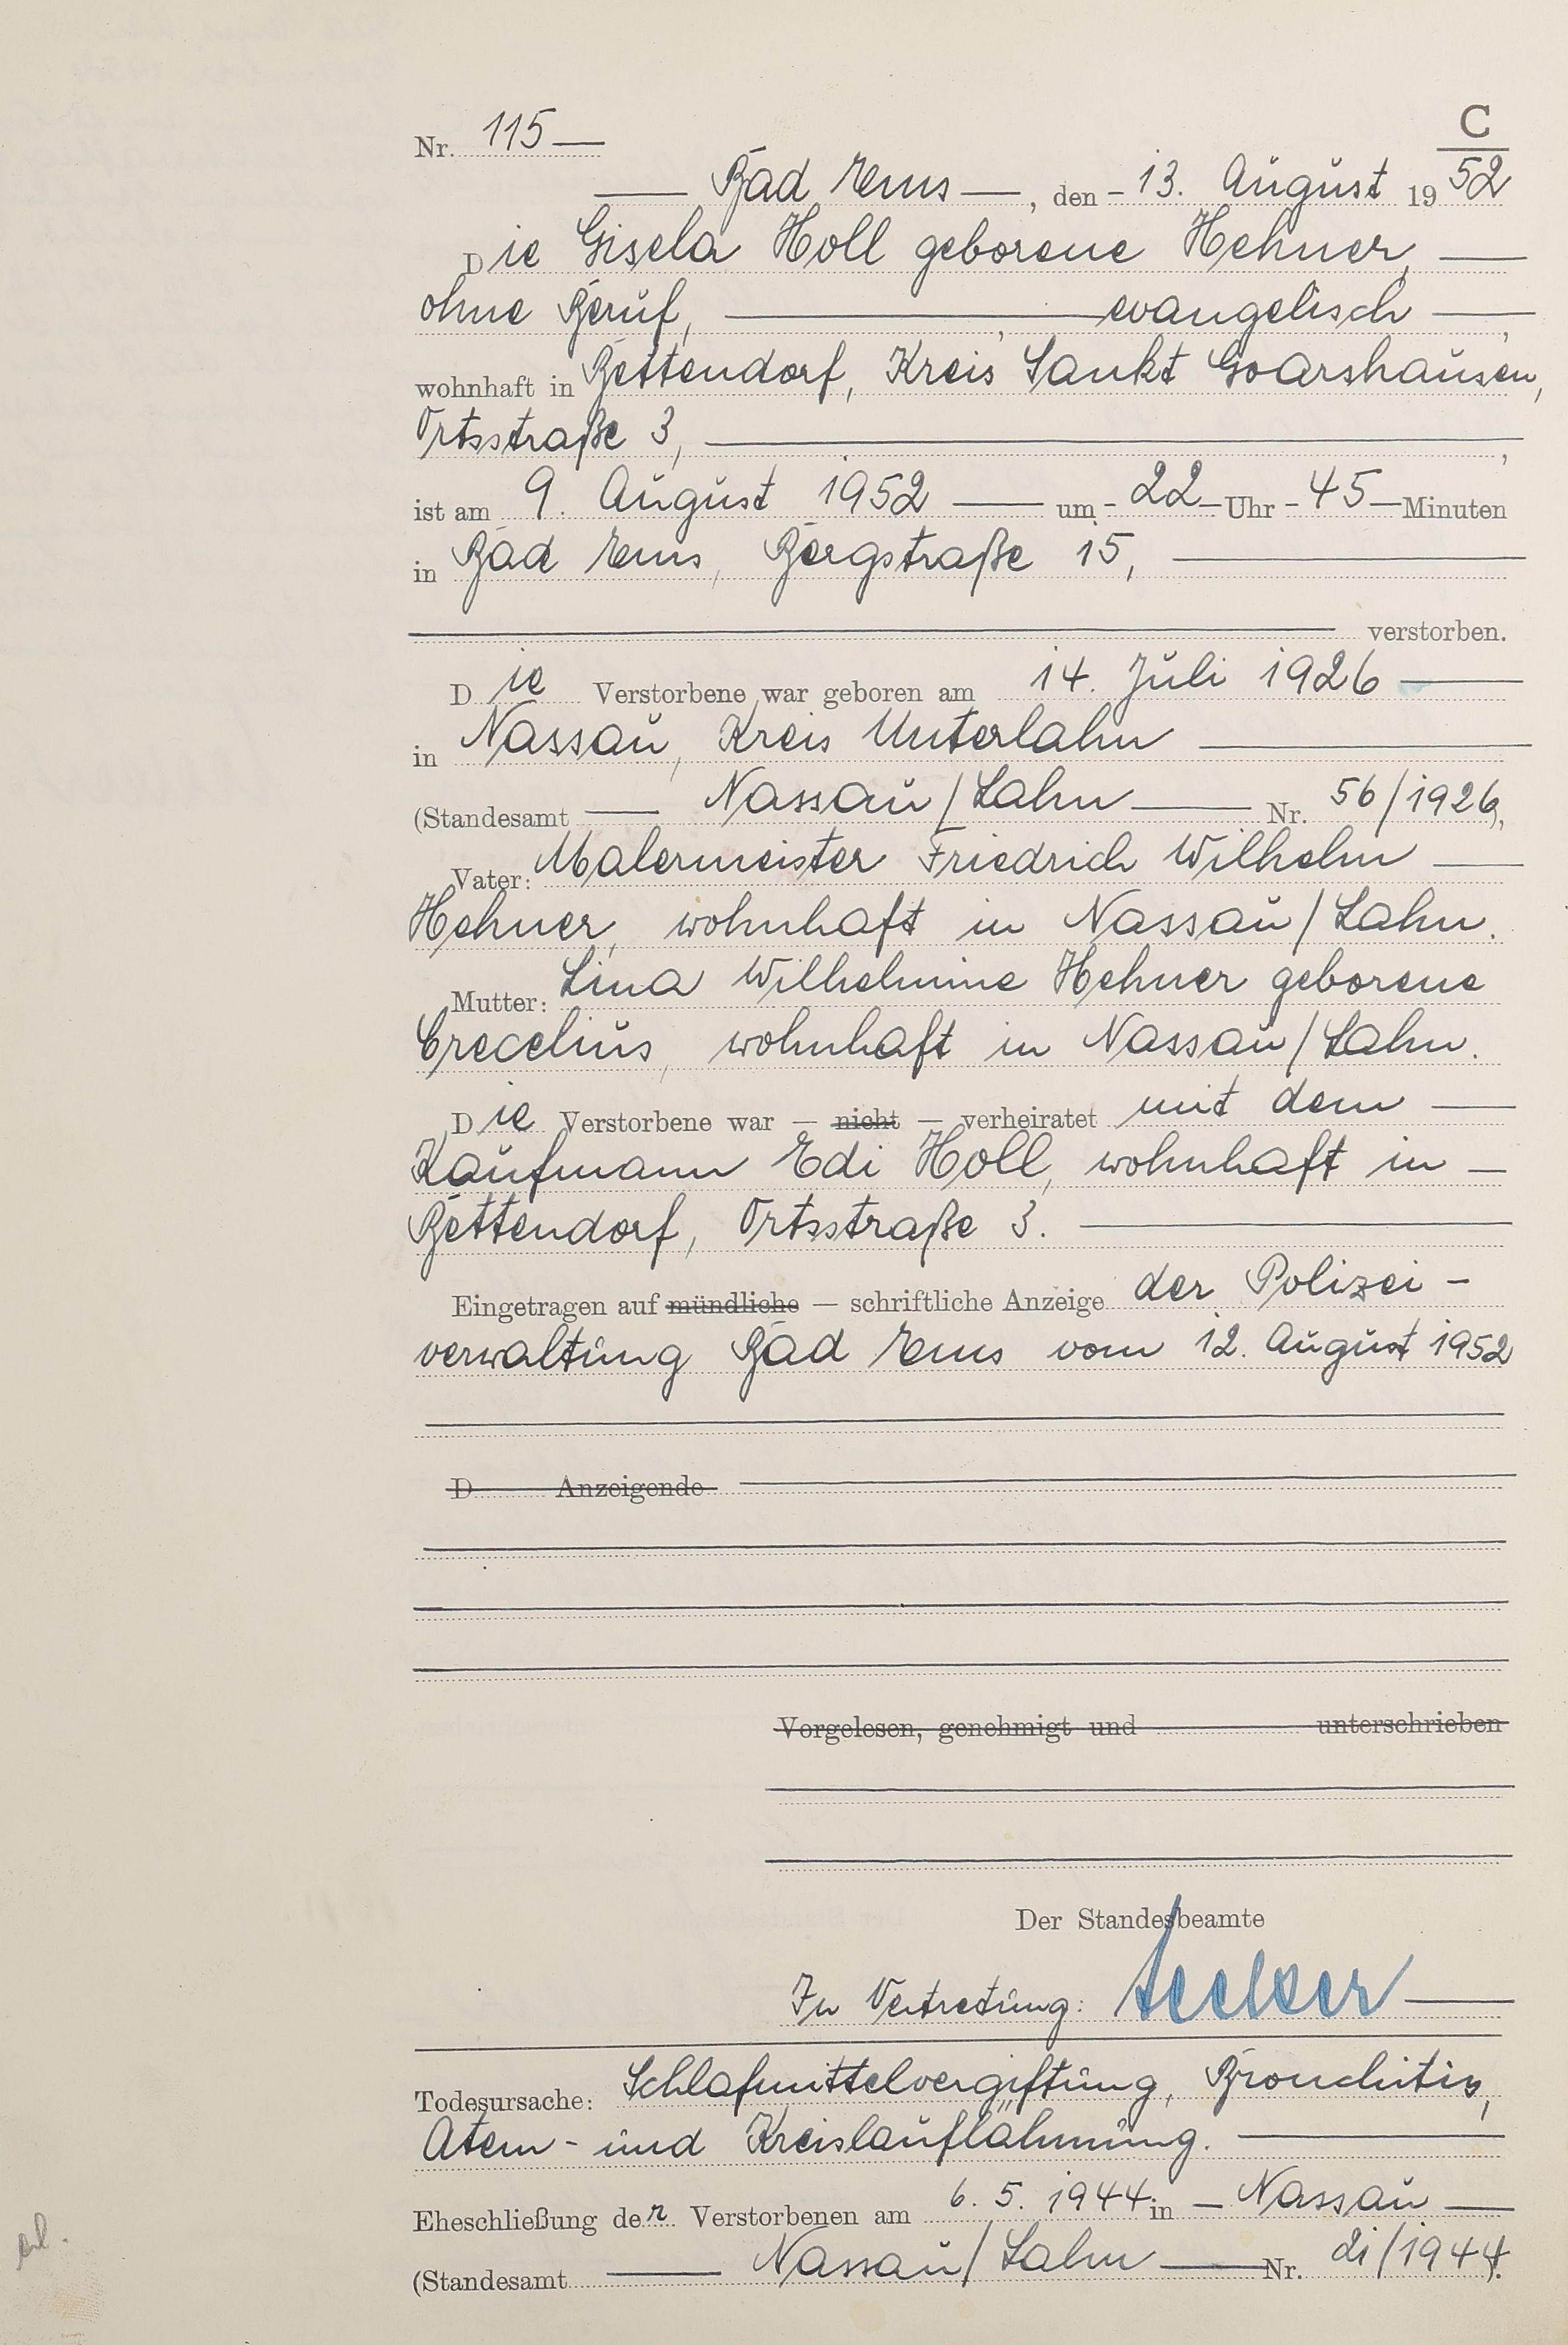 C
Nr. 115 —
— Bad Ems —, den - 13. August 19 52
Die Gisela Holl geborene Hehner, —
ohne Beruf, — , — evangelisch — ,
wohnhaft in Bettendorf, Kreis Sankt Goarshausen,
Ortsstraße 3, — ,
ist am 9. August 1952 — um - 22 — Uhr - 45 — Minuten
in Bad Ems, Bergstraße 15, —
— verstorben.
Die Verstorbene war geboren am 14. Juli 1926 —
in Nassau, Kreis Unterlahn —
(Standesamt — Nassau/Lahn — Nr. 56/1926),
Vater: Malermeister Friedrich Wilhelm —
Hehner, wohnhaft in Nassau/Lahn.
Mutter: Lina Wilhelmine Hehner geborene
Crecelius, wohnhaft in Nassau/Lahn.
Die Verstorbene war — nicht — verheiratet mit dem —
Kaufmann Edi Holl, wohnhaft in —
Bettendorf, Ortsstraße 3. —
Eingetragen auf mündliche — schriftliche Anzeige der Polizei -
verwaltung Bad Ems vom 12. August 1952
D Anzeigende —
Vorgelesen, genehmigt und unterschrieben
Der Standesbeamte
In Vertretung: —
Todesursache: Schlafmittelvergiftung, Bronchitis,
Atem- und Kreislauflähmung. —
Eheschließung der Verstorbenen am 6. 5. 1944 in — Nassau —
(Standesamt — Nassau/Lahn — Nr. 21/1944).